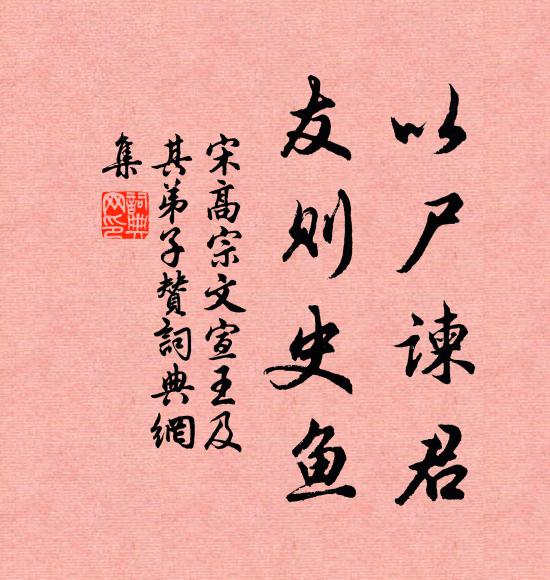 以尸谏君
友则史鱼
宋高宗文宣王及
其弟子赞词典網
集
詞典
网印